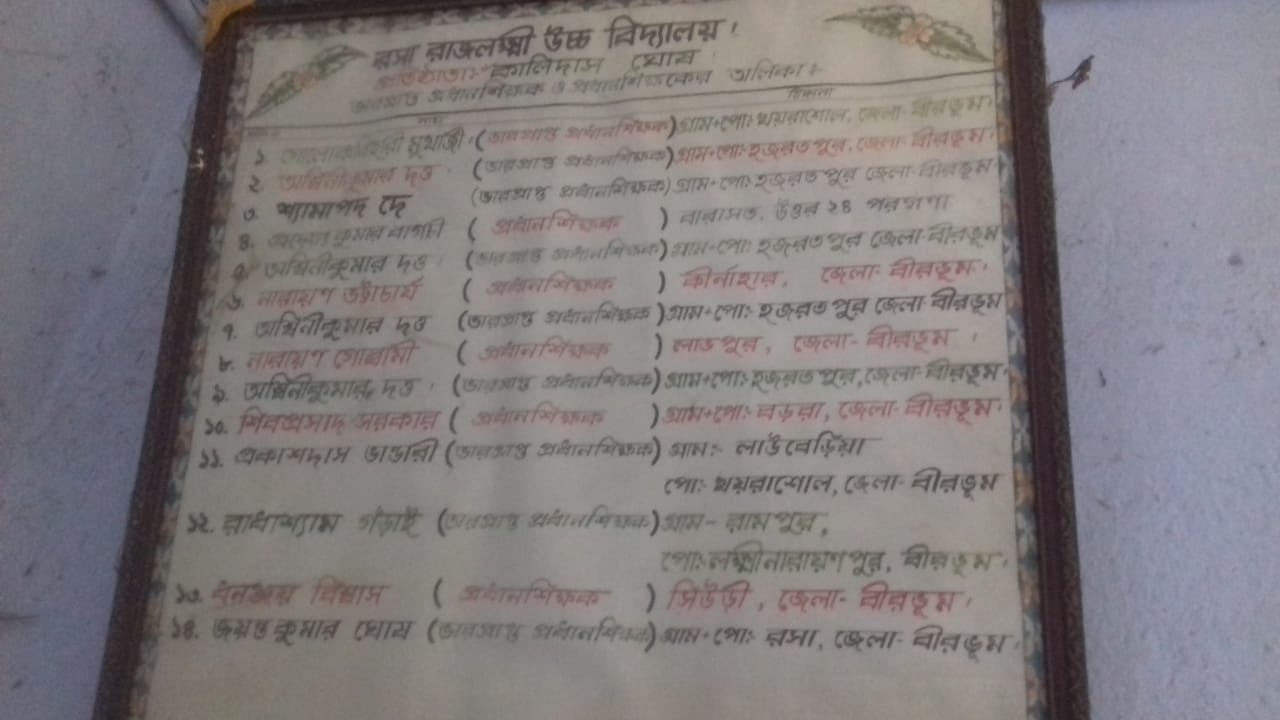 রসা রাজলক্ষ্মী উচ্চ বিদ্যালয়।
প্রতিষ্ঠাতাঃ- কালিদাস ঘোষ
ভারপ্রাপ্ত প্রধানশিক্ষক ও প্রধানশিক্ষকের তালিকাঃ-
নাম ঠিকানা
১. মুখার্জী। (ভারপ্রাপ্ত প্রধানশিক্ষক) গ্রাম+পোঃ খয়রাশোল, জেলা- বীরভূম।
২. অশ্বিনীকুমার দত্ত। (ভারপ্রাপ্ত প্রধানশিক্ষক) গ্রাম+পোঃ হজরতপুর, জেলা- বীরভূম।
৩. শ্যামাপদ দে (ভারপ্রাপ্ত প্রধানশিক্ষক) গ্রাম+পোঃ হজরতপুর জেলা- বীরভূম।
৪. কুমার বাগচী ( প্রধানশিক্ষক ) বারাসত, উত্তর ২৪ পরগণা
৫. অশ্বিনীকুমার দত্ত। (ভারপ্রাপ্ত প্রধানশিক্ষক) গ্রাম+পোঃ হজরতপুর জেলা- বীরভূম
৬. নারায়ণ ভট্টাচার্য ( প্রধানশিক্ষক ) কীর্নাহার, জেলা- বীরভূম।
৭. অশ্বিনীকুমার দত্ত (ভারপ্রাপ্ত প্রধানশিক্ষক) গ্রাম+পোঃ হজরতপুর জেলা- বীরভূম
৮. নারায়ণ গোস্বামী ( প্রধানশিক্ষক ) লাভপুর, জেলা- বীরভূম।
৯. অশ্বিনীকুমার দত্ত। (ভারপ্রাপ্ত প্রধানশিক্ষক) গ্রাম+পোঃ হজরতপুর, জেলা- বীরভূম।
১০. শিবপ্রসাদ সরকার ( প্রধানশিক্ষক ) গ্রাম+পোঃ বড়রা, জেলা- বীরভূম।
১১. প্রকাশদাস ভাণ্ডারী (ভারপ্রাপ্ত প্রধানশিক্ষক) গ্রামঃ- লাউবেড়িয়া
পোঃ খয়রাশোল, জেলা- বীরভূম
১২. রাধাশ্যাম গঁড়াই (ভারপ্রাপ্ত প্রধানশিক্ষক) গ্রাম- রামপুর,
পোঃ- লক্ষ্মীনারায়ণপুর, বীরভূম।
১৩. ধনঞ্জয় বিশ্বাস ( প্রধানশিক্ষক ) সিউড়ী, জেলা- বীরভূম।
১৪. জয়ন্তকুমার ঘোষ (ভারপ্রাপ্ত প্রধানশিক্ষক) গ্রাম+পোঃ রসা, জেলা- বীরভূম।